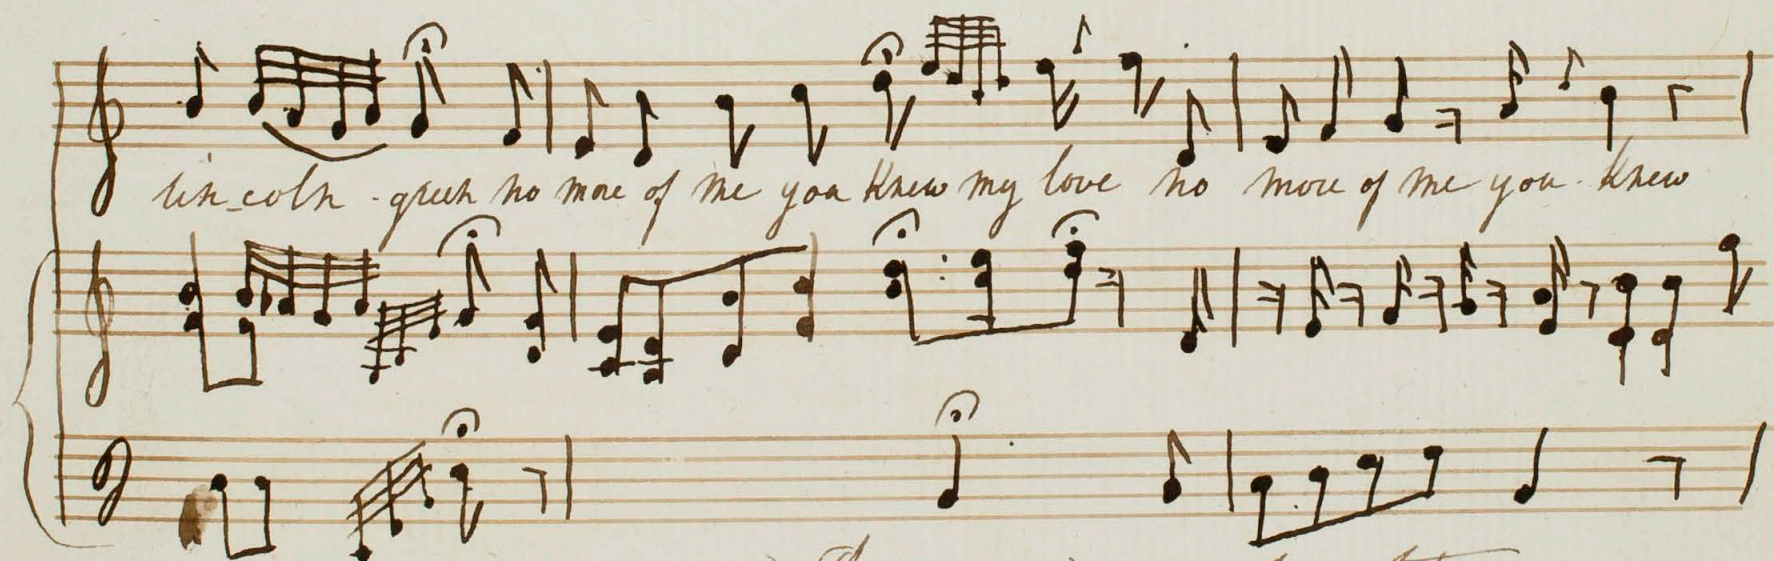 lin_coln - green no more of me you Knew my love no more of me you. Knew